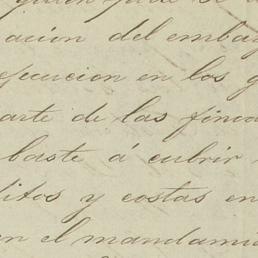 acion del embar
ejecucion en los g
arte de las finca
baste á cubrir
ditos y costas en
en el mandami